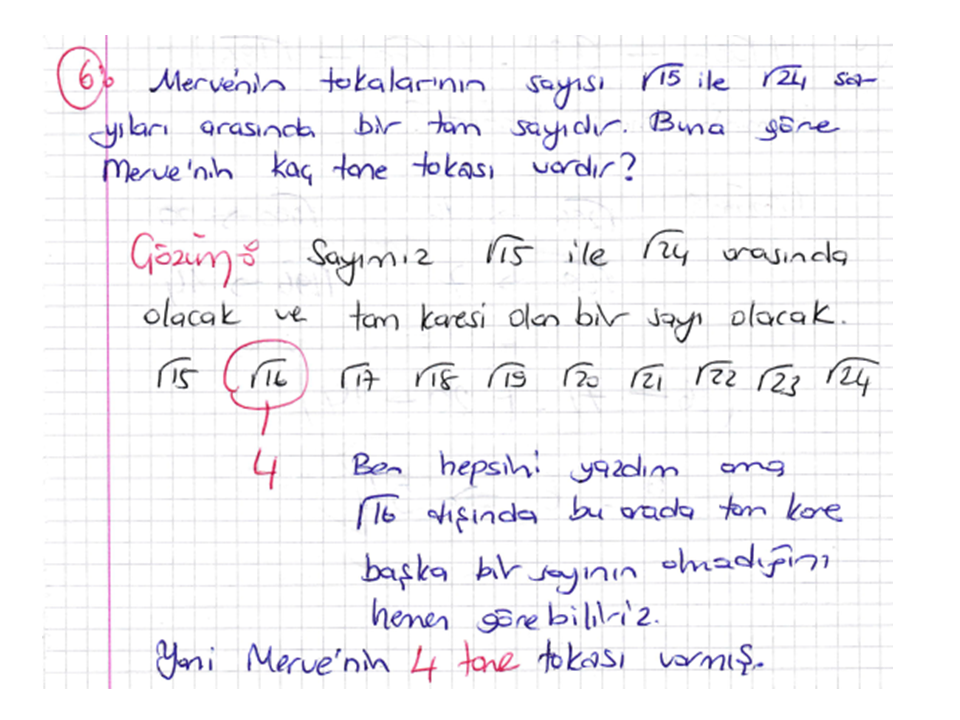 6) Merve'nin tokalarının sayısı √15 ile √24 sa-
yıları arasında bir tam sayıdır. Buna göre
Merve'nin kaç tane tokası vardır?
Çözüm: Sayımız √15 ile √24 arasında
olacak ve tam karesi olan bir sayı olacak.
√15 √16 √17 √18 √19 √20 √21 √22 √23 √24
4 Ben hepsini yazdım ama
√16 dışında bu arada tam kare
başka bir sayının olmadığını
hemen görebiliriz.
Yani Merve'nin 4 tane tokası varmış.